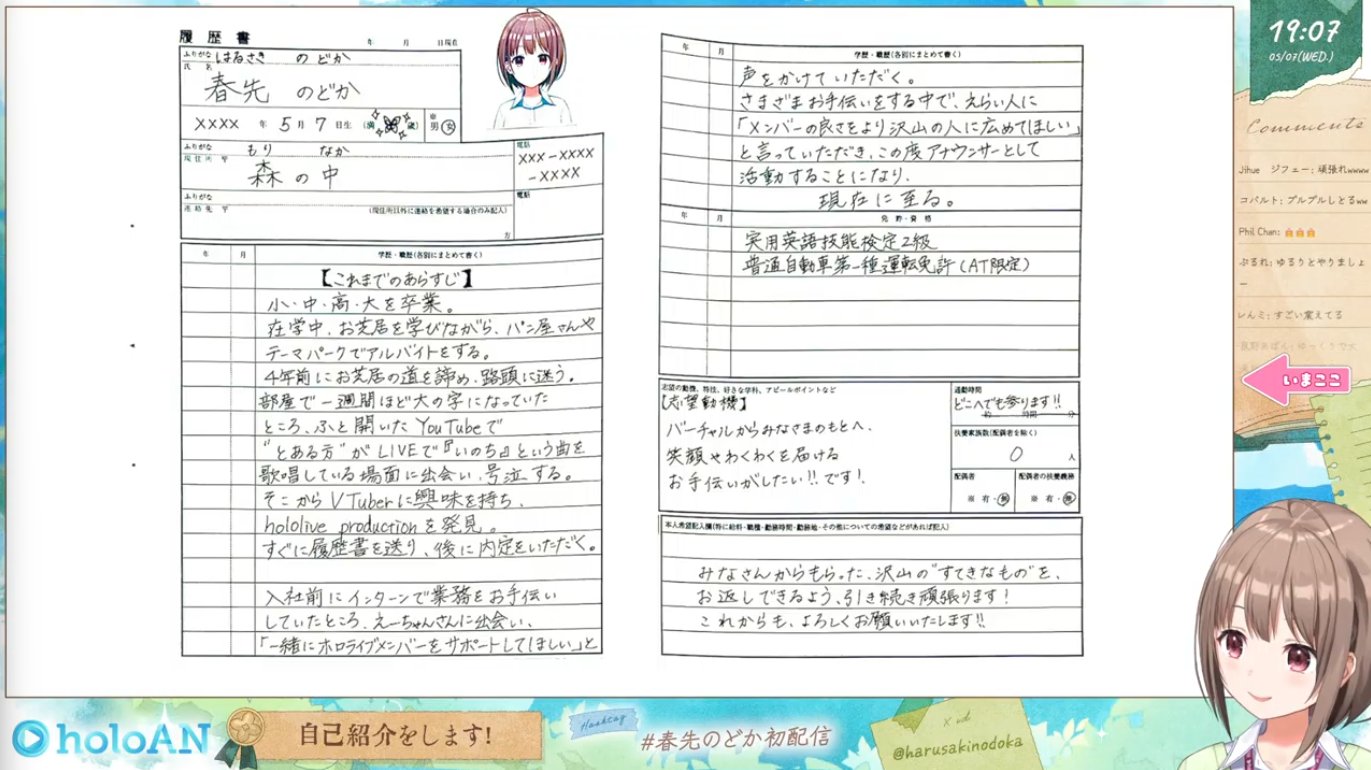 履 歴 書
年 月 日現在
ふりがな はるさき のどか
氏 名
春先 のどか
XXXX 年 5 月 7 日生 (満 歳)
※
男・女
ふりがな もり なか
現住所 〒
森 の 中
電話
XXX-XXXX
-XXXX
ふりがな
連絡先 〒
(現住所以外に連絡を希望する場合のみ記入)
方
電話
年 月 学歴・職歴(各別にまとめて書く)
【これまでのあらすじ】
小・中・高・大を卒業。
在学中、お芝居を学びながら、パン屋さんや
テーマパークでアルバイトをする。
4年前にお芝居の道を諦め、路頭に迷う。
部屋で一週間ほど大の字になっていた
ところ、ふと開いた YouTubeで
"とある方"がLIVEで『いのち』という曲を
歌唱している場面に出会い、号泣する。
そこからVTuberに興味を持ち、
hololive productionを発見。
すぐに履歴書を送り、後に内定をいただく。
入社前にインターンで業務をお手伝い
していたところ、えーちゃんさんに出会い、
「一緒にホロライブメンバーをサポートしてほしい」と
年 月 学歴・職歴(各別にまとめて書く)
声をかけていただく。
さまざまお手伝いをする中で、えらい人に
「メンバーの良さをより沢山の人に広めてほしい」
と言っていただき、この度アナウンサーとして
活動することになり、
現在に至る。
年 月 免許・資格
実用英語技能検定2級
普通自動車第一種運転免許(AT限定)
志望の動機、特技、好きな学科、アピールポイントなど
【志望動機】
バーチャルからみなさまのもとへ、
笑顔やわくわくを届ける
お手伝いがしたい!!です!
通勤時間
どこへでも参ります!!
約 時間 分
扶養家族数(配偶者を除く)
0 人
配偶者
※ 有・無
配偶者の扶養義務
※ 有・無
本人希望記入欄(特に給料・職種・勤務時間・勤務地・その他についての希望などがあれば記入)
みなさんからもらった、沢山の"すてきなもの"を、
お返しできるよう、引き続き頑張ります!
これからも、よろしくお願いいたします!!
19:07
05/07(WED.)
Comments
Jihue ジフェー: 頑張れwwww
コバルト: プルプルしとるww
Phil Chan:
ぷるれ: ゆるりとやりましょ
ー
レんミ: すごい震えてる
いまここ
holoAN
自己紹介をします!
Hashtag
#春先のどか初配信
X id
@harusakinodoka